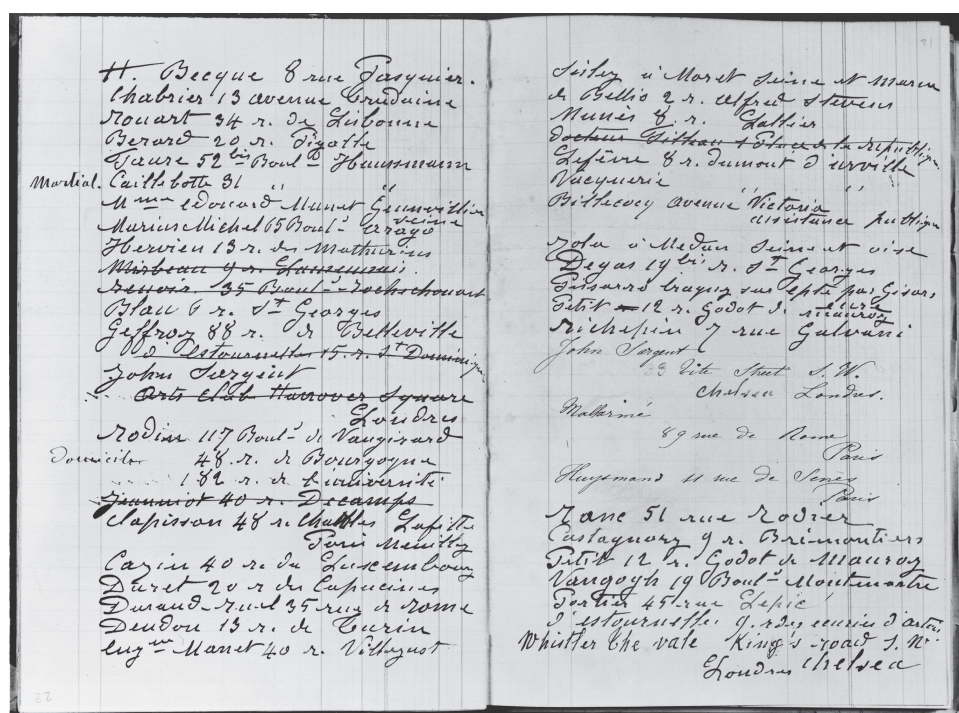 H. Becque 8 rue Pasquier.
Chabrier 13 avenue Trudaine
Rouart 34 r. de Lisbonne
Berard 20 r. Pigalle
Faure 52 bis Boul.d Haussmann
Martial. Caillebotte 31 " "
Mme edouard Manet Gennevillier
Seine
Marius Michel 65 Boul.d arago
Hervieu 13 r. des Mathurins
Mirbeau 9 r.
renoir. 35 Boul.d rochechouart
Blau 6 r. St Georges
Geffroy 88 r. de Belleville
d'estournelles 15. r. St Dominique
John Sargent
Arts Club Hanover Square
Londres
Rodin 117 Boul.d de Vaugirard
Domicile 48. r. de Bourgogne
182 r. de l'université
Jeanniot 40 r. Decamps
Clapisson 48 r. Charles Lafitte
Paris Neuilly
Cazin 40 r. du Luxembourg
Duret 20 r des Capucines
Durand-ruel 35 rue de rome
Deudon 13 r. de Turin
eugne Manet 40 r. Villejust
22
21
Sisley à Moret Seine et Marne
de Bellio 2 r. alfred Stevens
Munes 8 r.
docteur place de la république
Lefèvre 8 r. dumont d'urville
Vacquerie " "
Billecocq avenue Victoria
assistance publique
Zola à Médan Seine et oise
Degas 19 bis r. St Georges
Pissarro Eragny sur epte par Gisors
eure
Petit 12 r. Godot de mauroy
Richepin 7 rue Galvani
John Sargent
33 Tite Street S.W.
Chelsea Londres.
Mallarmé
89 rue de Rome
Paris
Huysmans 11 rue de Sèvres
Paris
Ranc 51 rue Rodier
Castagnary 9 r. Brémontiers
Petit 12 r. Godot de Mauroy
Vangogh 19 Boul.d Montmartre
Portier 45 rue Lepic
d'estournelles 9. r des ecuries d'artois
Whistler the vale King's road S.W.
Londres Chelsea